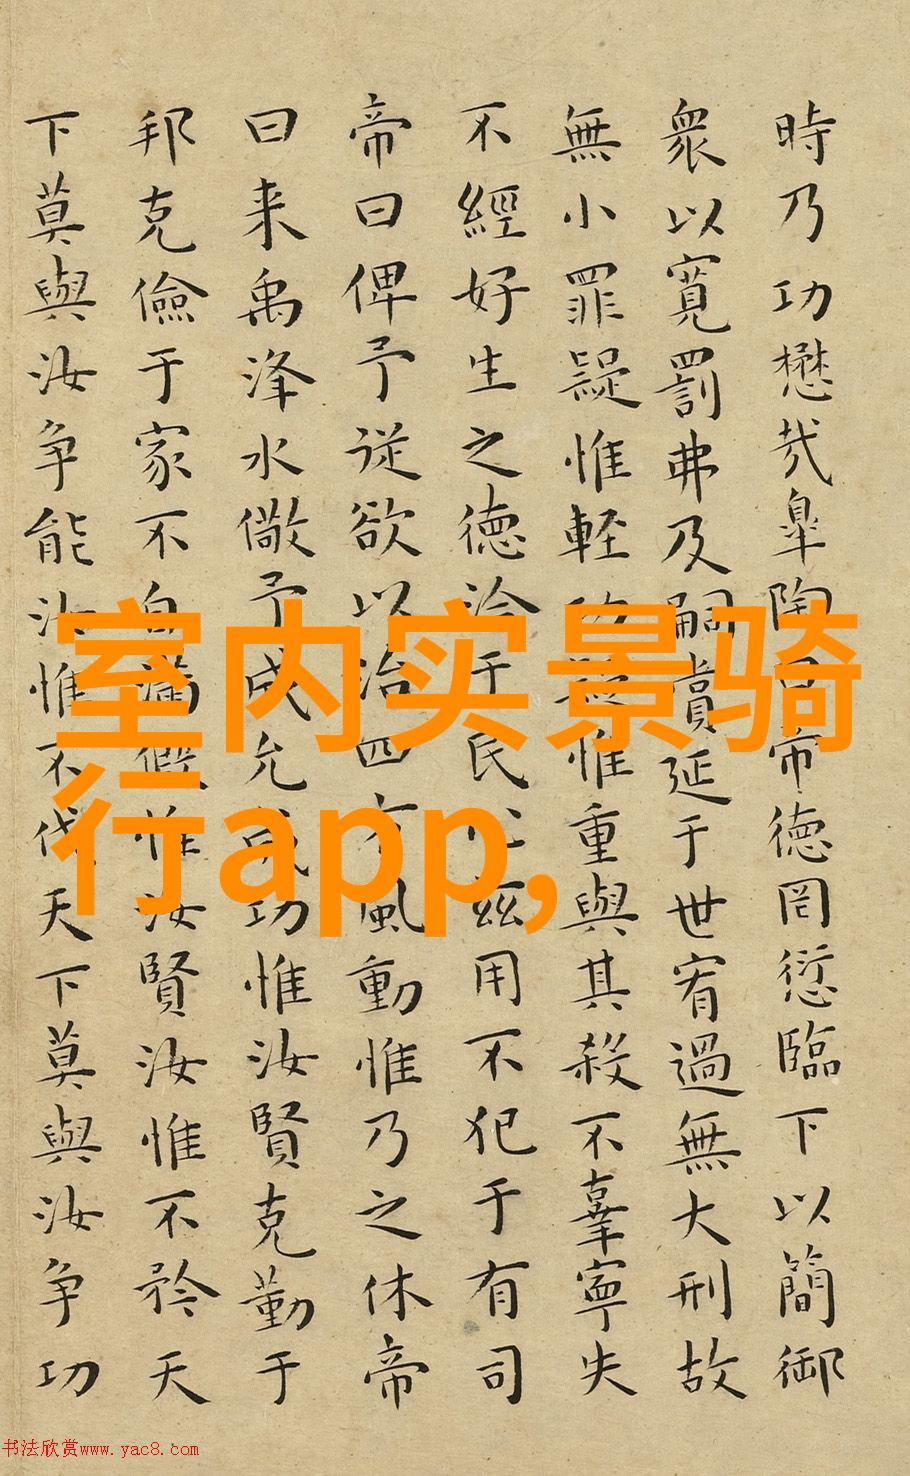 時乃功懋哉皐陶曰帝德罔愆臨下以簡御
衆以寬罰弗及嗣賞延于世宥過無大刑故
無小罪疑惟輕功疑惟重與其殺不辜寧失
不經好生之德洽于民心兹用不犯于有司
帝曰俾予従欲以治四方風動惟乃之休帝
曰来禹洚水儆予成允成功惟汝賢克勤于
邦克儉于家不自滿假惟汝賢汝惟不矜天
下莫與汝争能汝惟不伐天下莫與汝争功
室内实景骑
行app,
书法欣赏www.yac8.com